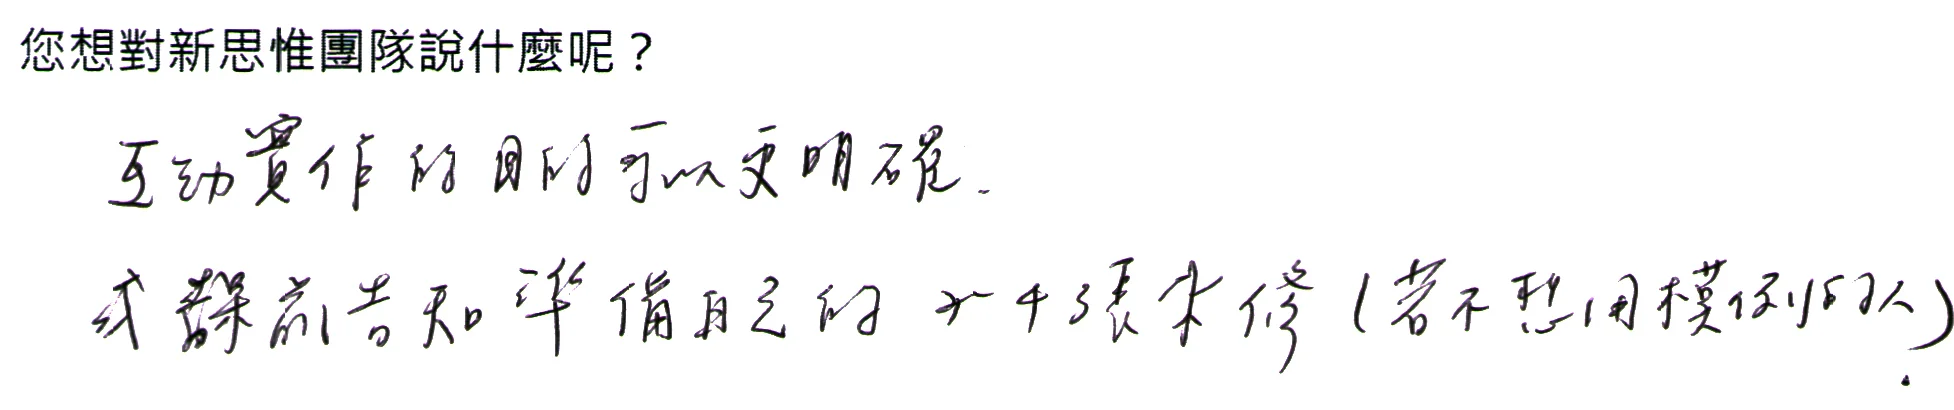 您想對新思惟團隊說什麼呢？
互動實作的目的可以更明確.
或課前告知準備自己的 2~4張來修(若不想用模例的人).